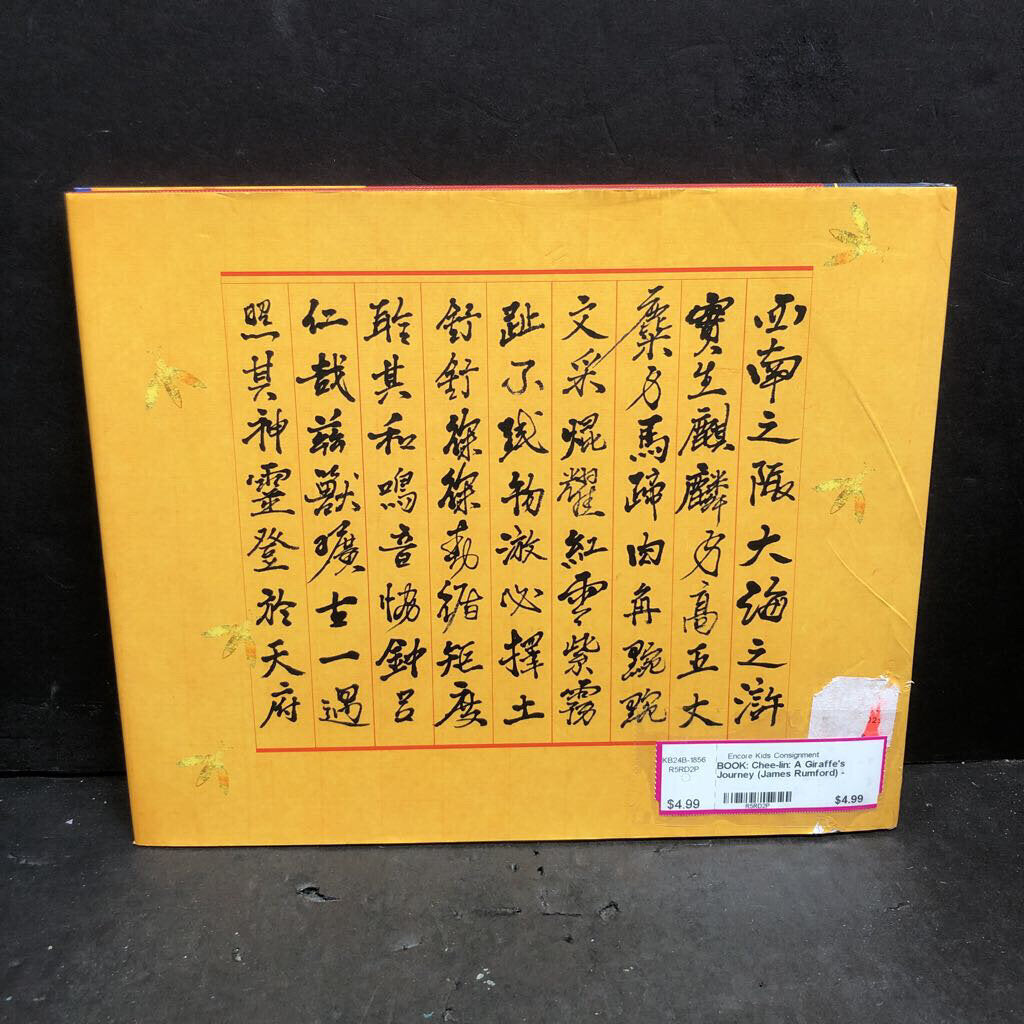 西南之陬大海之滸
實生麒麟身高五丈
麋身馬蹄肉角黦黦
文采焜耀紅雲紫霧
趾不踐物游必擇土
舒舒徐徐動循矩度
聆其和鳴音恊鍾呂
仁哉茲獸曠古一遇
照其神靈登於天府
KB24B-1856
R5RD2P
$4.99
Encore Kids Consignment
BOOK: Chee-lin: A Giraffe's
Journey (James Rumford) -
R5RD2P
$4.99